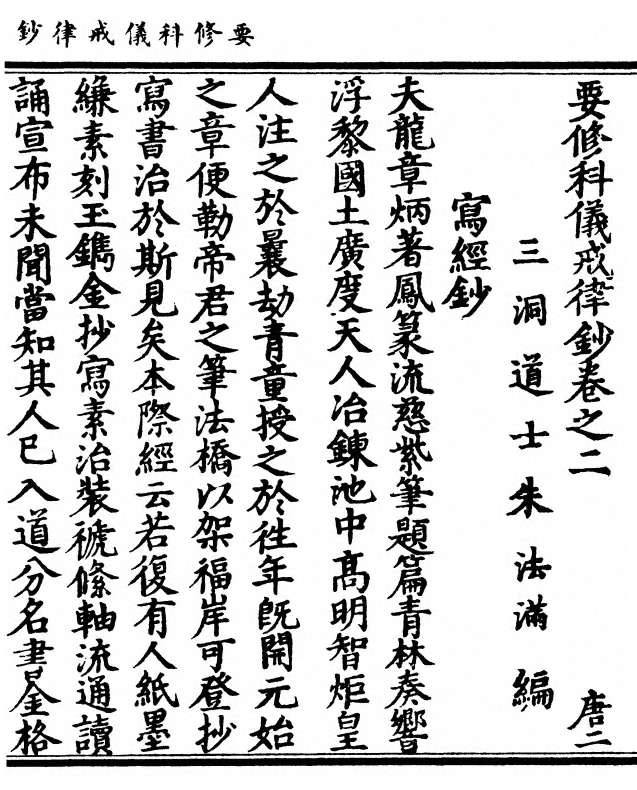 要修科儀戒律鈔
要修科儀戒律鈔卷之二 唐二
三洞道士朱法滿編
寫經鈔
夫龍章炳著鳳篆流慈紫筆題篇青林奏響
浮黎國土廣度天人冶鍊池中高明智炬皇
人注之於曩劫青童授之於往年旣開元始
之章便勒帝君之筆法橋以架福岸可登抄
寫書治於斯見矣本際經云若復有人紙墨
縑素刻玉鐫金抄寫素治裝褫絛軸流通讀
誦宣布未聞當知其人已入道分名書金格